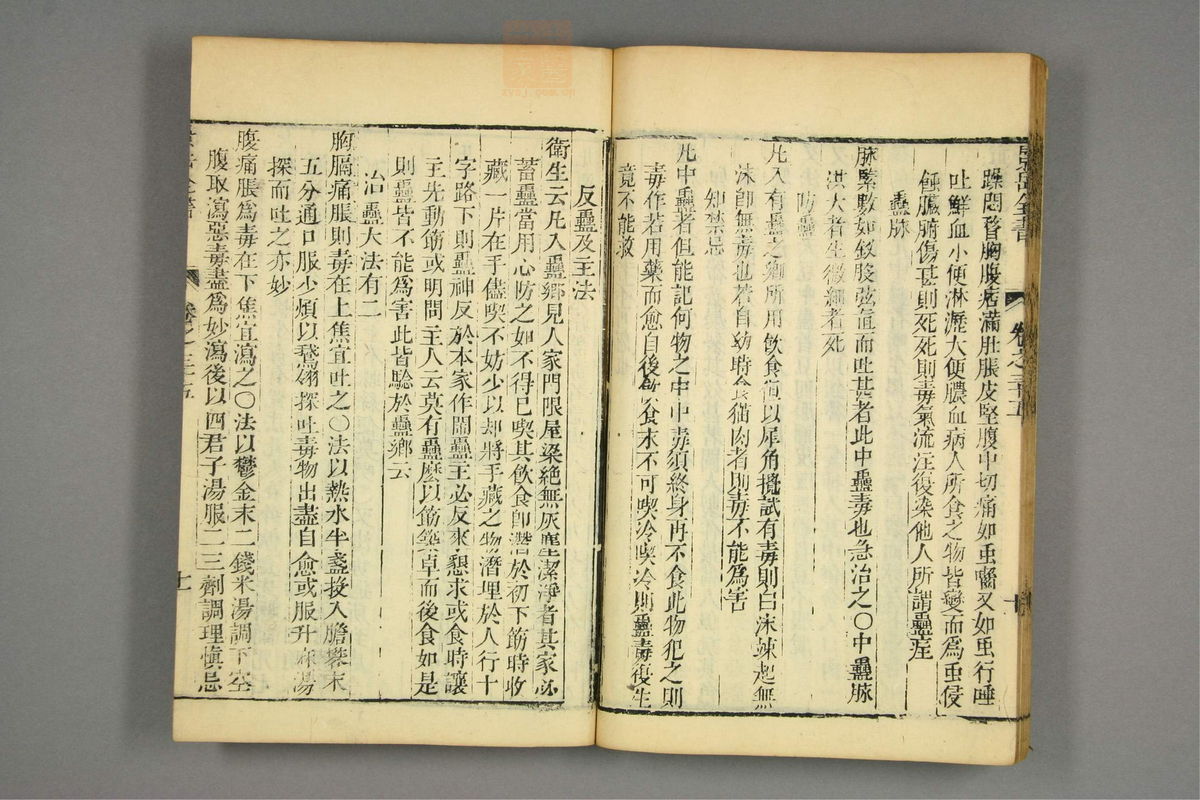 景岳全書
卷之三十五
十
躁悶瞀胸腹痞滿肚脹皮堅腹中切痛如虫嚙又如虫行唾
吐鮮血小便淋瀝大便膿血病人所食之物皆變而爲虫侵
蝕臟腑傷甚則死死則毒氣流注復染他人所謂蠱疰
蠱脉
脉緊數如釵股弦直而吐甚者此中蠱毒也急治之〇中蠱脉
洪大者生微細者死
防蠱
凡入有蠱之鄉所用飲食宜以犀角攪試有毒則白沫竦起無
沫卽無毒也若自幼時食猫肉者則毒不能爲害
知禁忌
凡中蠱者但能記何物之中中毒須終身再不食此物犯之則
毒作若用藥而愈自後飲食末不可喫冷喫冷則蠱毒復生
竟不能救
反蠱及主法
衛生云凡入蠱鄉見人家門限屋梁絶無灰塵潔淨者其家必
蓄蠱當用心防之如不得已喫其飲食卽潛於初下筯時收
藏一片在手儘喫不妨少以却將手藏之物潛埋於人行十
字路下則蠱神反於本家作鬧蠱主必反來懇求或食時讓
主先動筯或明問主人云莫有蠱麽以筯築卓而後食如是
則蠱皆不能爲害此皆驗於蠱鄉云
治蠱大法有二
胸膈痛脹則毒在上焦宜吐之〇法以熱水半盞投入膽礬末
五分通口服少頃以鵞翎探吐毒物出盡自愈或服升麻湯
探而吐之亦妙
腹痛脹爲毒在下焦宜瀉之〇法以鬱金末二錢米湯調下空
腹取瀉惡毒盡爲妙瀉後以四君子湯服二三劑調理慎忌
景岳全書
卷之三十五
十一
zysj.com.cn